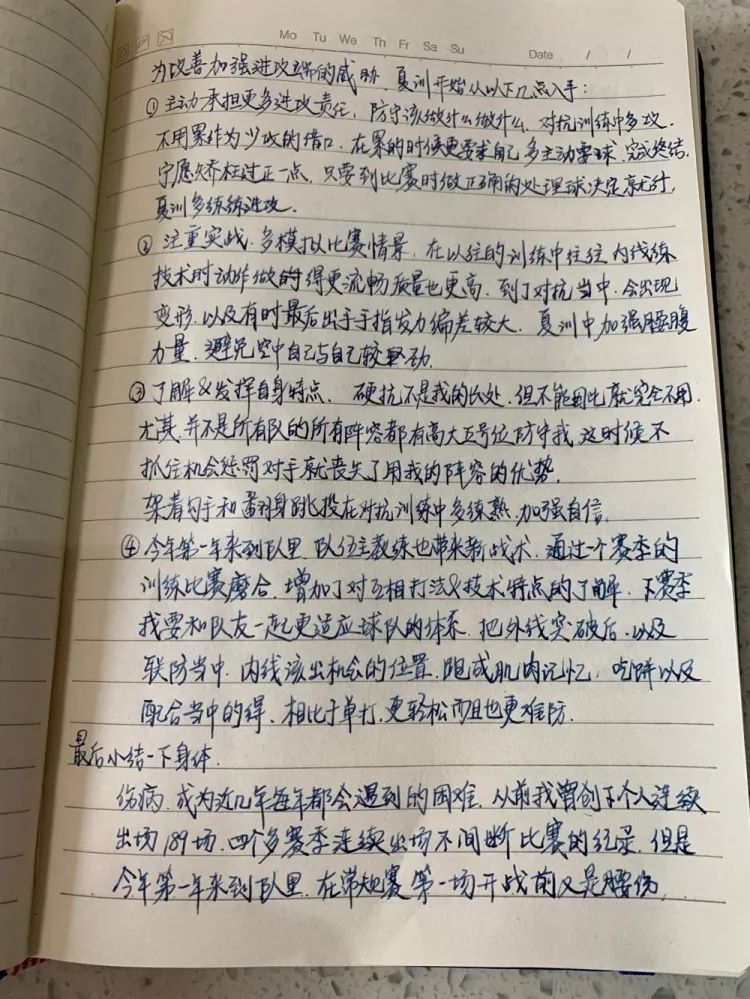 Mo Tu We Th Fr Sa Su Date / /
为改善加强进攻端的威胁，夏训开始从以下几点入手：
①主动承担更多进攻责任，防守该做什么做什么，对抗训练中多攻，
不用累作为少攻的借口，在累的时候更要求自己多主动要球，完成终结，
宁愿矫枉过正一点，只要到比赛时做正确的处理球决定就行，
夏训多练练进攻．
②注重实战，多模拟比赛情景，在以往的训练中往往内线练
技术时动作做的得更流畅质量也更高，到了对抗当中，会出现
变形，以及有时最后出手手指发力偏差较大，夏训中加强腰腹
力量，避免空中自己与自己较暂劲．
③了解&发挥自身特点，硬抗不是我的长处，但不能因此就完全不用
尤其，并不是所有队的所有阵容都有高大五号位防守我，这时候不
抓住机会惩罚对手就丧失了用我的阵容的优势．
架着勾手和翻身跳投在对抗训练中多练熟，加强自信．
④今年第一年来到队里，队伍主教练也带来新战术，通过一个赛季的
训练比赛磨合，增加了对互相打法&技术特点的了解，下赛季
我要和队友一起更适应球队的体系，把外线突破后，以及
联防当中，内线该出机会的位置，跑成肌肉记忆，吃饼以及
配合当中的得，相比于单打，更轻松而且也更难防．
最后小结一下身体．
伤病，成为近几年每年都会遇到的困难，从前我曾创下个人连续
出场189场，四个多赛季连续出场不间断比赛的纪录，但是
今年第一年来到队里，在常规赛第一场开战前又是腰伤，